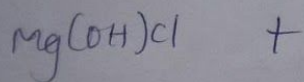 Mg(OH)Cl +